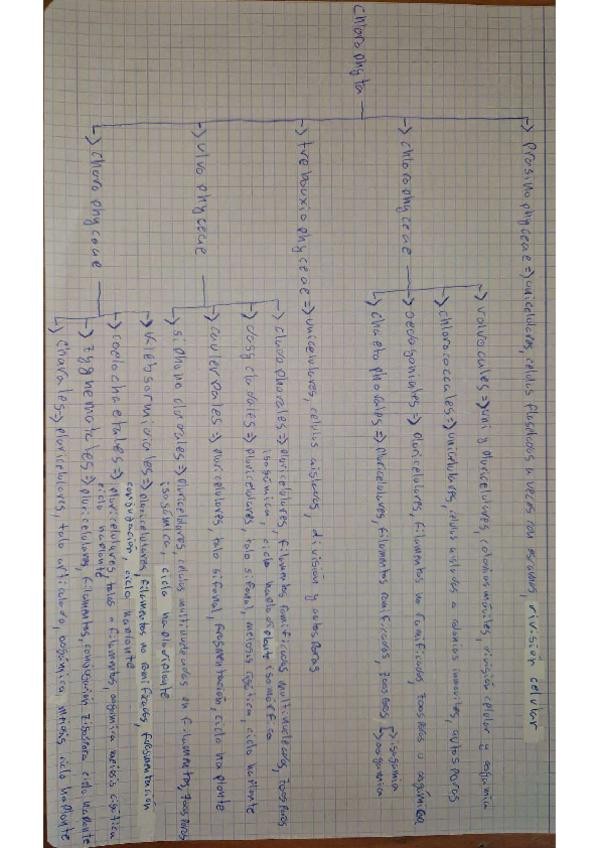 Chlorophyta
-> prasinophyceae => unicelulares, células flageladas a veces con escamas, división celular
-> chlorophyceae
-> volvocales => uni y pluricelulares, colonias móviles, división celular y oogámica
-> chlorococcales => unicelulares, células aisladas o colonias inmóviles, autosporas
-> oedogoniales => pluricelulares, filamentos no ramificados, zoosporas o oogámica
-> chaetophorales => pluricelulares, filamentos ramificados, zoosporas -> isogámica
-> oogámica
-> trebouxiophyceae => unicelulares, células aisladas, división y autosporas
-> ulvophyceae
-> cladophorales => pluricelulares, filamentos ramificados multinucleados, zoosporas
isogámica, ciclo haplodiplonte isomórfico
-> dasycladales => pluricelulares, talo sifonal, meiosis cigótica, ciclo haplonte
-> caulerpales => pluricelulares, talo sifonal, fragmentación, ciclo haplonte
-> siphonocladales => pluricelulares, células multinucleadas en filamentos, zoosporas
isogámica, ciclo haplodiplonte
-> charophyceae
-> klebsormidiales => pluricelulares filamentos no ramificados, fragmentación
conjugación, ciclo haplonte
-> coelochaetales => pluricelulares, talos o filamentos, oogámica meiosis cigótica
ciclo haplonte
-> zygnematales => pluricelulares, filamentos, conjugación zigospora ciclo haplonte
-> charales => pluricelulares, talo articulado, oogámica, meiosis ciclo haplonte